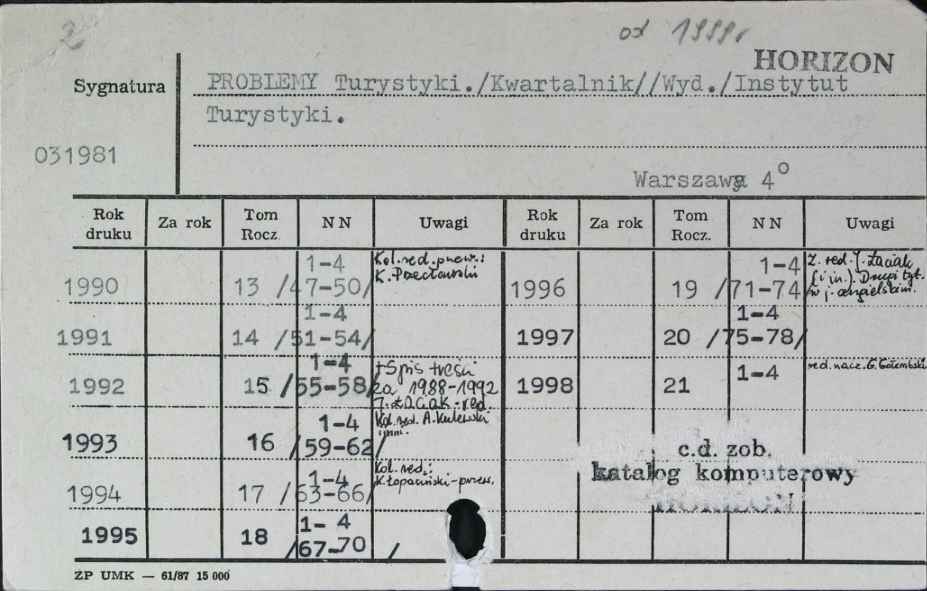 2 od 1999r
HORIZON
Sygnatura PROBLEMY Turystyki./Kwartalnik//Wyd./Instytut
Turystyki.
031981
Warszawa 4°
Rok druku Za rok Tom Rocz. N N Uwagi Rok druku Za rok Tom Rocz. N N Uwagi
1990 13 1-4 /47-50/ Kol. red. przew.: K. Przecławski
1996 19 1-4 /71-74/ Z. red. J. Łaciak (i in.). Drugi tyt. w j. angielskim.
1991 14 1-4 /51-54/
1997 20 1-4 /75-78/
1992 15 1-4 /55-58/ +Spis treści za 1988-1992 J. ŁACIAK-red.
1998 21 1-4 red. nacz. G. Gołembski
1993 16 1-4 /59-62/ Kol. red. A. Kulewski
1994 17 1-4 /63-66/ Kol. red.: K Łopaciński-przew.
1995 18 1-4 /67-70 /
c.d. zob.
katalog komputerowy
HORIZON
ZP UMK — 61/87 15 000